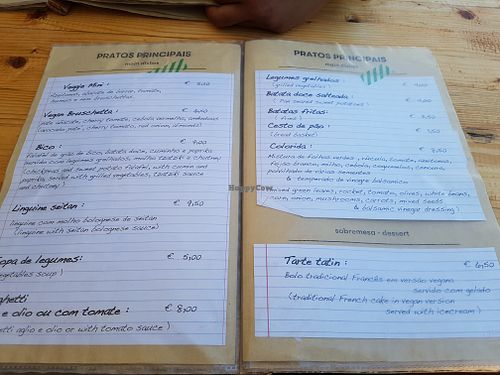 PRATOS PRINCIPAIS
main dishes
Veggie Mini :
Bruschetta
Vegan Bruschetta :
Bico : € 9,00
falafel de grão de bico, batata doce,
served with grilled vegetables, tzatziki sauce
and chutney)
Linguine seitan : € 9,50
linguine com molho bolognese de seitan
(linguine with seitan bolognese sauce)
opa de legumes: € 5,00
egetables soup)
ghetti
e olio ou com tomate : € 8,00
etti aglio e olio or with tomato sauce)
PRATOS PRINCIPAIS
main dishes
Legumes grelhados :
(grilled vegetables)
Batata doce salteada :
(Pan seared sweet potatoes)
Batatas fritas:
(fries)
Cesto de pão :
(bread basket)
Colorida : € 7,50
Mistura de folhas verdes, rúcula, tomate, azeitonas,
feijão branco, milho, cebola, cogumelos, cenoura,
& temperado de vinagre balsamico.
mixed green leaves, rocket, tomato, olives, white beans,
corn, onion, mushrooms, carrots, mixed seeds
& balsamic vinegar dressing)
sobremesa - dessert
Tarte tatin : € 6,50
Bolo tradicional Francês em versão vegana
servido com gelado
(traditional French cake in vegan version
served with icecream)
HappyCow